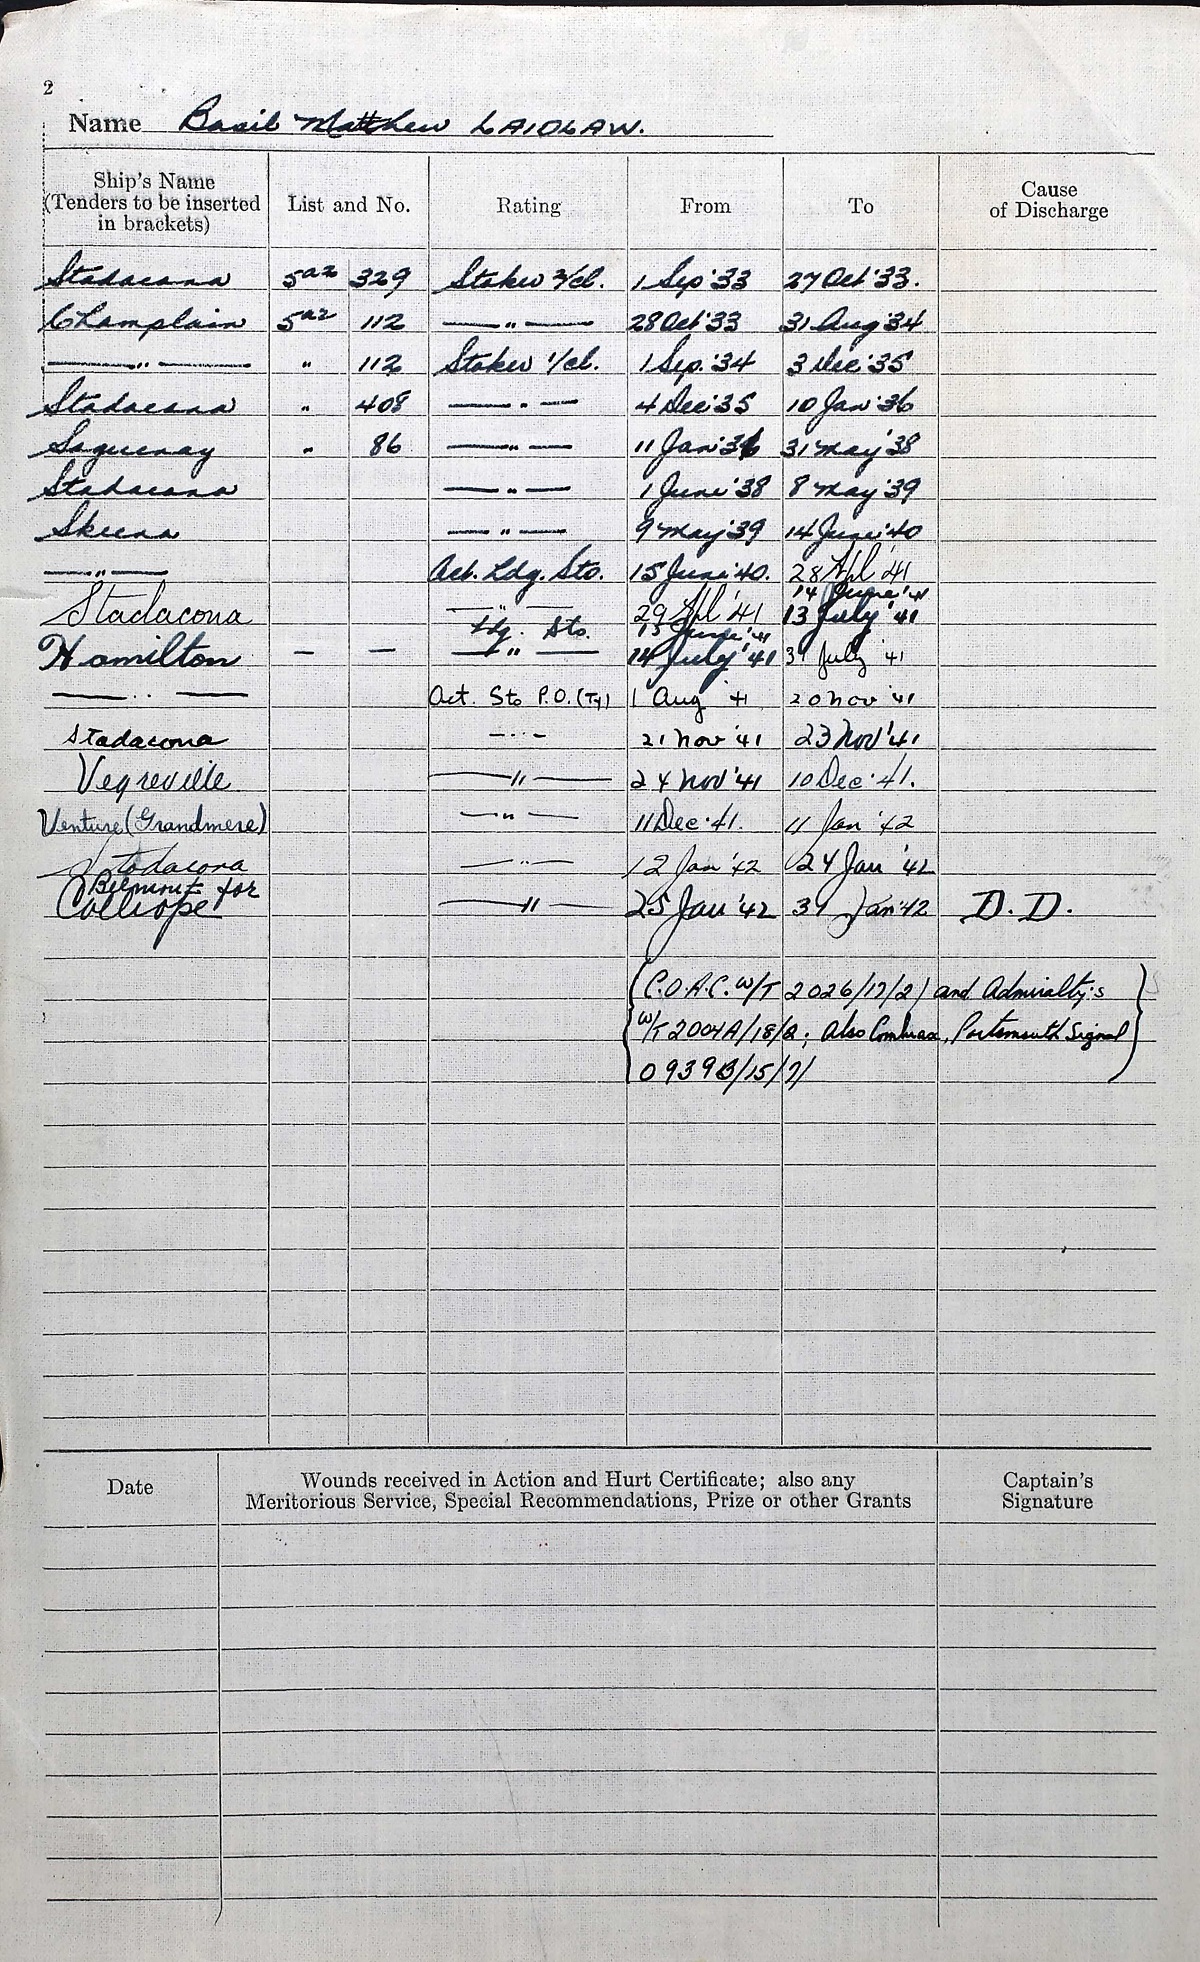 2
Name Basil Matthew LAIDLAW.
Ship's Name (Tenders to be inserted in brackets) List and No. Rating From To Cause of Discharge
Stadacona 5a2 329 Stoker 2/cl. 1 Sep '33 27 Oct '33.
Champlain 5a2 112 — " — 28 Oct '33 31 Aug '34
— " — " 112 Stoker 1/cl. 1 Sep. '34 3 Dec '35
Stadacona " 408 — " — 4 Dec '35 10 Jan '36
Saguenay " 86 — " — 11 Jan '36 31 May '38
Stadacona — " — 1 June '38 8 May '39
Skeena — " — 9 May '39 14 June '40
— " — Act. Ldg. Sto. 15 June '40. 28 Apl '41
Stadacona — " — 29 Apl '41 14 June '41
Ldg. Sto. 15 June '41 13 July '41
Hamilton — — — " — 14 July '41 31 July '41
— " — Act. Sto P.O. (Ty) 1 Aug '41 20 Nov '41
Stadacona — " — 21 Nov '41 23 Nov '41
Vegreville — " — 24 Nov '41 10 Dec '41.
Venture (Grandmere) — " — 11 Dec '41. 11 Jan '42
Stadacona — " — 12 Jan '42 24 Jan '42
Belmont for
Calliope — " — 25 Jan '42 31 Jan '42 D.D.
{C.O.A.C. W/T 2026/17/2/ and Admiralty's
W/T 2004A/18/2; Also Portsmouth Signal
0939B/15/7/}
Date Wounds received in Action and Hurt Certificate; also any Captain's
Meritorious Service, Special Recommendations, Prize or other Grants Signature